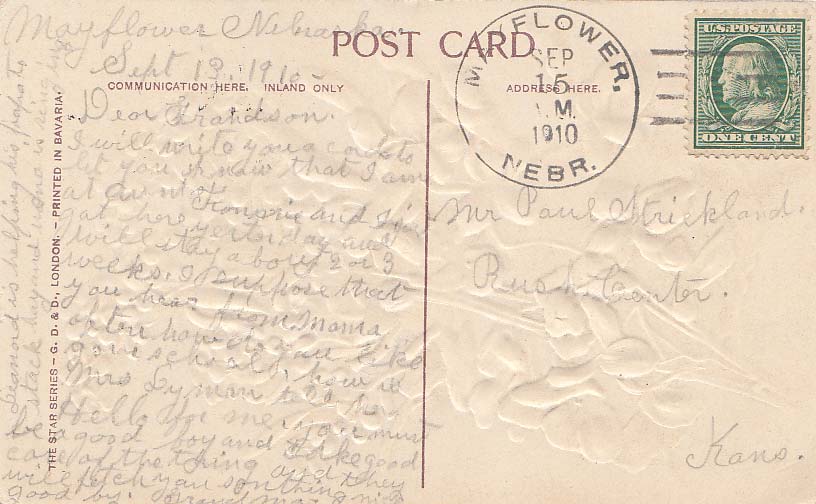 Mayflower Nebraska.
Sept 13, 1910
POST CARD
COMMUNICATION HERE. INLAND ONLY
ADDRESS HERE.
MAYFLOWER,
SEP
15
M.
1910
NEBR.
U.S. POSTAGE
ONE CENT
Dear Grandson.
I will write you a card to
let you know that I am
at aunt
got here yesterday and
will stay about 2 or 3
weeks. I suppose that
you hear from Mama
often how do you like
your school, how is
Mrs Lyman tell her
Hello for me, you must
be a good boy and take good
care of the thing and they
will fetch you somthing
good by. Grand Ma
Mr Paul Strickland.
Rush Center.
Kans.
THE STAR SERIES – G. D. & D., LONDON. – PRINTED IN BAVARIA.
is helping his
stack hay and